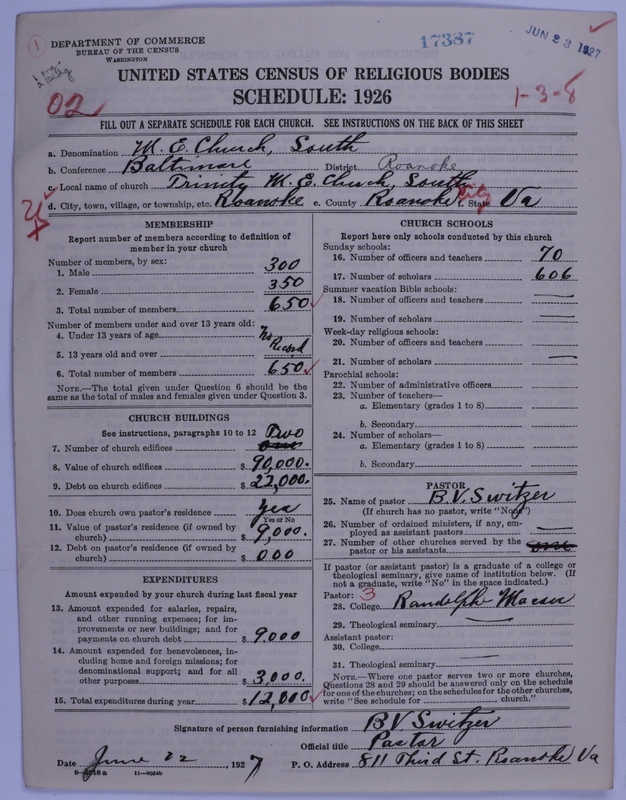 1
DEPARTMENT OF COMMERCE
BUREAU OF THE CENSUS
WASHINGTON
17387
JUN 23 1927
02
1-3-8
UNITED STATES CENSUS OF RELIGIOUS BODIES
SCHEDULE: 1926
FILL OUT A SEPARATE SCHEDULE FOR EACH CHURCH. SEE INSTRUCTIONS ON THE BACK OF THIS SHEET
a. Denomination M. E. Church, South
b. Conference Baltimore District Roanoke
c. Local name of church Trinity M. E. Church, South
d. City, town, village, or township, etc. Roanoke e. County Roanoke City f. State Va
MEMBERSHIP
Report number of members according to definition of
member in your church
Number of members, by sex:
1. Male 300
2. Female 350
3. Total number of members 650
Number of members under and over 13 years old:
4. Under 13 years of age No
5. 13 years old and over Record
6. Total number of members 650
NOTE.—The total given under Question 6 should be the
same as the total of males and females given under Question 3.
CHURCH BUILDINGS
See instructions, paragraphs 10 to 12 Two
7. Number of church edifices one
8. Value of church edifices $ 90,000.
9. Debt on church edifices $ 22,000.
10. Does church own pastor's residence yes
Yes or No
11. Value of pastor's residence (if owned by
church) $ 9,000.
12. Debt on pastor's residence (if owned by
church) $ 000
EXPENDITURES
Amount expended by your church during last fiscal year
13. Amount expended for salaries, repairs,
and other running expenses; for im-
provements or new buildings; and for
payments on church debt $ 9000
14. Amount expended for benevolences, in-
cluding home and foreign missions; for
denominational support; and for all
other purposes $ 3,000.
15. Total expenditures during year $ 12,000
CHURCH SCHOOLS
Report here only schools conducted by this church
Sunday schools:
16. Number of officers and teachers 70
17. Number of scholars 606
Summer vacation Bible schools:
18. Number of officers and teachers —
19. Number of scholars —
Week-day religious schools:
20. Number of officers and teachers
21. Number of scholars —
Parochial schools:
22. Number of administrative officers
23. Number of teachers—
a. Elementary (grades 1 to 8)
b. Secondary
24. Number of scholars—
a. Elementary (grades 1 to 8)
b. Secondary
PASTOR
25. Name of pastor B. V. Switzer
(If church has no pastor, write "None")
26. Number of ordained ministers, if any, em-
ployed as assistant pastors —
27. Number of other churches served by the
pastor or his assistants one
If pastor (or assistant pastor) is a graduate of a college or
theological seminary, give name of institution below. (If
not a graduate, write "No" in the space indicated.)
Pastor: 3
28. College Randolph Macon
29. Theological seminary —
Assistant pastor:
30. College
31. Theological seminary
NOTE.—Where one pastor serves two or more churches,
Questions 28 and 29 should be answered only on the schedule
for one of the churches; on the schedules for the other churches,
write "See schedule for church."
Signature of person furnishing information B V Switzer
Official title Pastor
Date June 22, 1927 P. O. Address 811 Third St. Roanoke Va